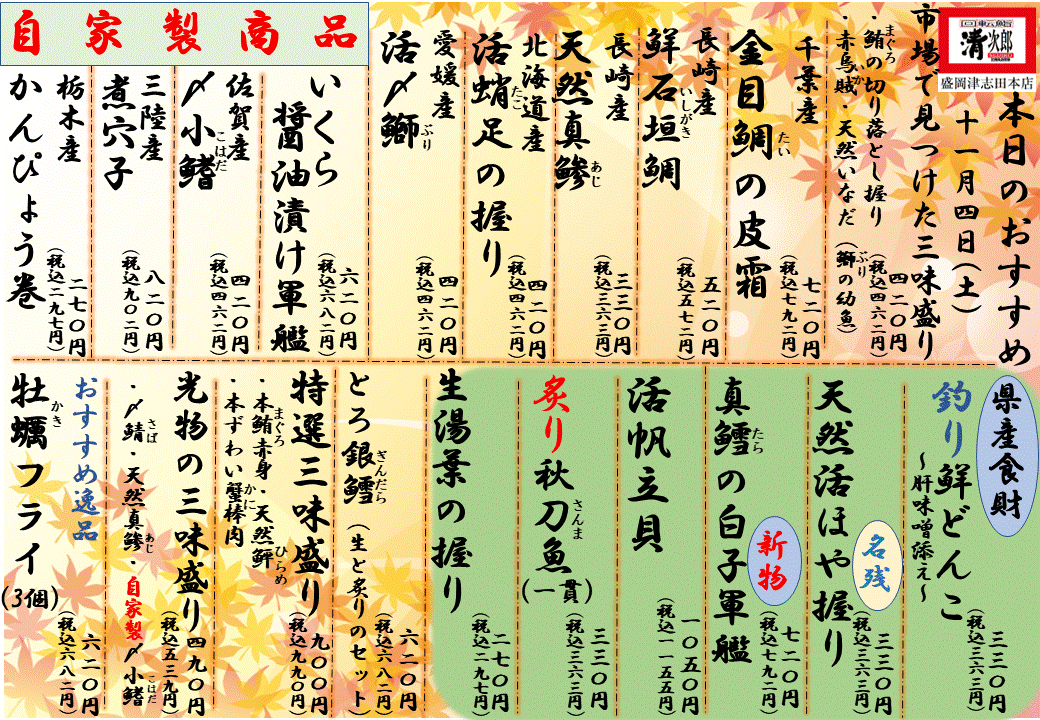 回転鮨
清次郎
盛岡津志田本店
本日のおすすめ
十一月四日(土)
市場で見つけた三味盛り
・鮪の切り落とし握り
まぐろ
・赤烏賊・天然いなだ(鰤の幼魚)
いか
ぶり
四二〇円
(税込四六二円)
千葉産
金目鯛の皮霜
たい
七二〇円
(税込七九二円)
長崎産
鮮石垣鯛
いしがき
五二〇円
(税込五七二円)
長崎産
天然真鯵
あじ
三三〇円
(税込三六三円)
北海道産
活蛸足の握り
たこ
四二〇円
(税込四六二円)
愛媛産
活〆鰤
ぶり
四二〇円
(税込四六二円)
自家製商品
いくら
醤油漬け軍艦
六二〇円
(税込六八二円)
佐賀産
〆小鰭
こはだ
四二〇円
(税込四六二円)
三陸産
煮穴子
八二〇円
(税込九〇二円)
栃木産
かんぴょう巻
二七〇円
(税込二九七円)
県産食財
釣り鮮どんこ
～肝味噌添え～
三三〇円
(税込三六三円)
天然活ほや握り
名残
三三〇円
(税込三六三円)
真鱈の白子軍艦
たら
新物
七二〇円
(税込七九二円)
活帆立貝
一〇五〇円
(税込一一五五円)
炙り秋刀魚(一貫)
さんま
三三〇円
(税込三六三円)
生湯葉の握り
二七〇円
(税込二九七円)
とろ銀鱈(生と炙りのセット)
ぎんだら
六二〇円
(税込六八二円)
特選三味盛り
・本鮪赤身・天然鮃
まぐろ
ひらめ
・本ずわい蟹棒肉
かに
九〇〇円
(税込九九〇円)
光物の三味盛り
・〆鯖・天然真鯵・自家製〆小鰭
さば
あじ
こはだ
四九〇円
(税込五三九円)
おすすめ逸品
牡蠣フライ(3個)
かき
六二〇円
(税込六八二円)